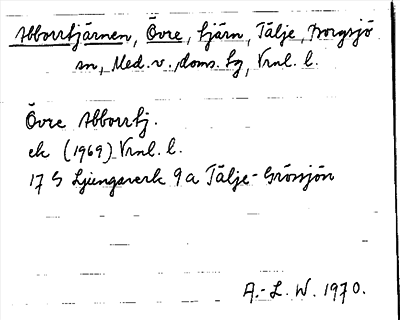 Abborrtjärnen, Övre, tjärn, Tälje, Borgsjö
sn, Med. v. doms. tg, Vrnl. l.
Övre Abborrtj.
ek (1969) Vrnl. l.
17 G Ljungaverk 9a Tälje-Grössjön
A.-L. W. 1970.